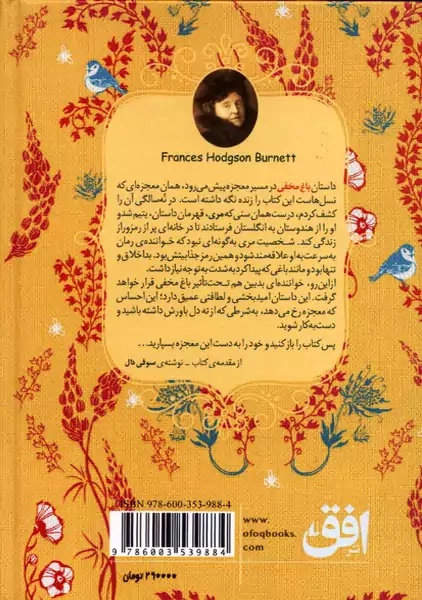 Frances Hodgson Burnett
داستان باغ مخفی در مسیر معجزه پیش می‌رود، همان معجزه‌ای که
نسل‌هاست این کتاب را زنده نگه داشته است. در نُه‌سالگی آن را
کشف کردم، درست همان سنی که مری، قهرمان داستان، یتیم شد و
او را از هندوستان به انگلستان فرستادند تا در خانه‌ای پر از رمزوراز
زندگی کند. شخصیت مری به‌گونه‌ای نبود که خواننده‌ی رمان
به‌سرعت به او علاقه‌مند شود و همین رمز جذابیتش بود. بداخلاق و
تنها بود و مانند باغی که پیدا کرد به‌شدت به توجه نیاز داشت.
از این‌رو، خواننده‌ای بدبین هم تحت‌تأثیر باغ مخفی قرار خواهد
گرفت. این داستان امیدبخشی و لطافتی عمیق دارد؛ این احساس
که معجزه رخ می‌دهد، به‌شرطی که از ته دل باورش داشته باشید و
دست‌به‌کار شوید.
پس کتاب را باز کنید و خود را به دست این معجزه بسپارید...
از مقدمه‌ی کتاب - نوشته‌ی سوفی دال
ISBN 978-600-353-988-4
9 786003 539884
۲۹۰۰۰۰ تومان
www.
ofoqbooks.
com
نشر افق